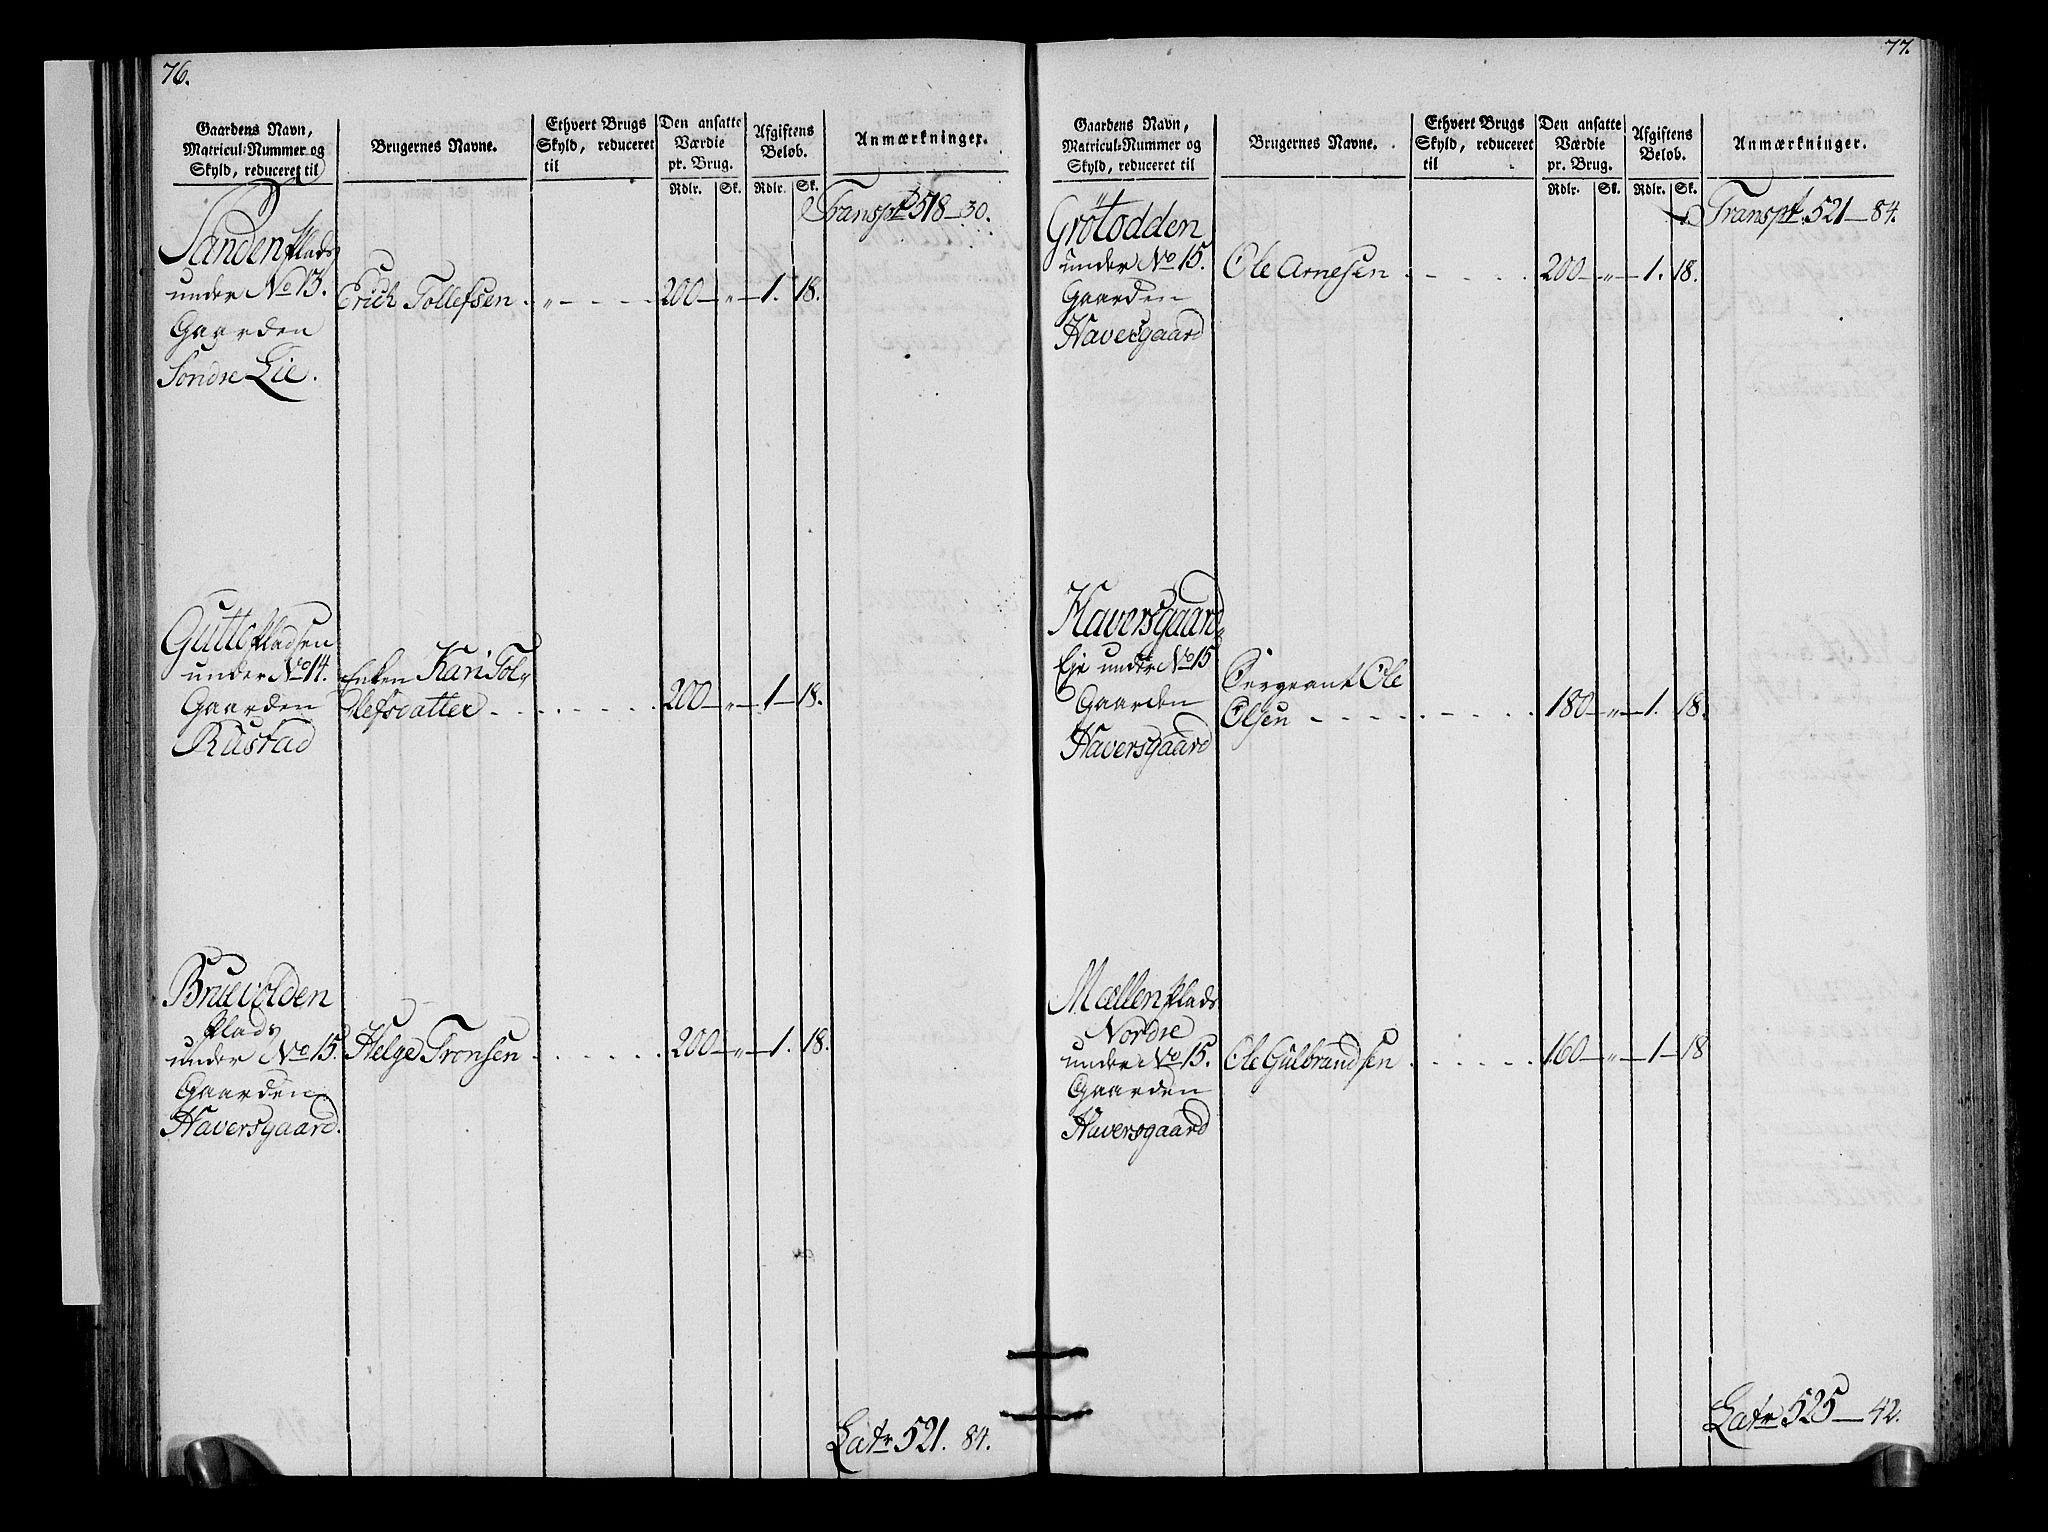 76.
Gaardens Navn, Matricul-Nummer og Skyld, reduceret til
Brugernes Navne.
Ethvert Brugs Skyld, reduceret til
Den ansatte Værdie pr. Brug.
Afgiftens Beløb.
Anmærkninger.
Rdlr. Sk. Rdlr. Sk.
Transpt 518 — 30.
Sanden Plads
under No 13. Erich Tollefsen . „ - - - - 200 — „ — 1. 18.
Gaarden
Søndre Lie.
Gutte Pladsen
under No 14. Enken Kari Tol-
Gaarden lefsdatter - - - - - - 200 — „ — 1 — 18.
Rustad
Bruevolden
Plads
under No 15. Helge Tronsen - - - - - 200 — „ — 1. 18.
Gaarden
Haversgaard.
Latr 521. 84.
77.
Gaardens Navn, Matricul-Nummer og Skyld, reduceret til
Brugernes Navne.
Ethvert Brugs Skyld, reduceret til
Den ansatte Værdie pr. Brug.
Afgiftens Beløb.
Anmærkninger.
Rdlr. Sk. Rdlr. Sk.
Transpt. 521 — 84.
Grötodden
under No 15. Ole Arnesen - - - - - 200 — „ — 1. 18.
Gaarden
Haversgaard
Haversgaard
Eje under No 15 Sergeant Ole
Gaarden Olsen - - - - - - - - 180 — „ — 1. 18.
Haversgaard
Mællen Plads
Nordre
under No 15. Ole Gulbrandsen - - - - - 160 — „ — 1 — 18
Gaarden
Haversgaard
Latr 525 — 42.